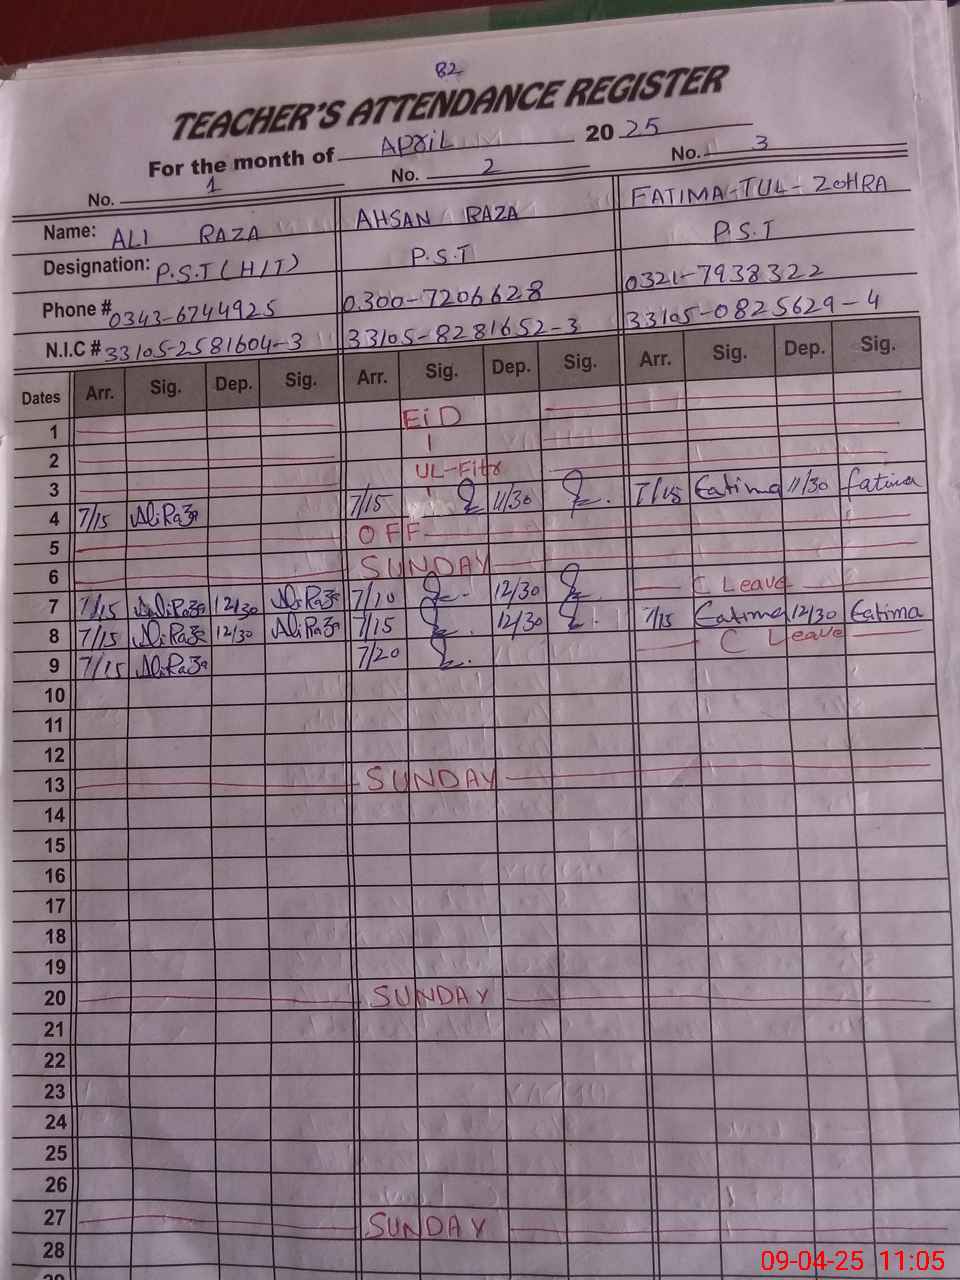 82
TEACHER'S ATTENDANCE REGISTER
For the month of April 2025
No. 1 No. 2 No. 3
Name: ALI RAZA AHSAN RAZA FATIMA-TUL-ZOHRA
Designation: P.S.T (H/T) P.S.T P.S.T
Phone # 0343-6744925 0300-7206628 0321-7938322
N.I.C # 33105-2581604-3 33105-8281652-3 33105-0825629-4
Dates Arr. Sig. Dep. Sig. Arr. Sig. Dep. Sig. Arr. Sig. Dep. Sig.
1 EiD
2
3 UL-Fitr
4 7/15 AliRaza 7/15 11/30 7/15 Fatima 11/30 Fatima
5 OFF
6 SUNDAY
7 7/15 AliRaza 12/30 AliRaza 7/10 12/30 C Leave
8 7/15 AliRaza 12/30 AliRaza 7/15 12/30 7/15 Fatima 12/30 Fatima
9 7/15 AliRaza 7/20 C Leave
10
11
12
13 SUNDAY
14
15
16
17
18
19
20 SUNDAY
21
22
23
24
25
26
27 SUNDAY
28
09-04-25 11:05